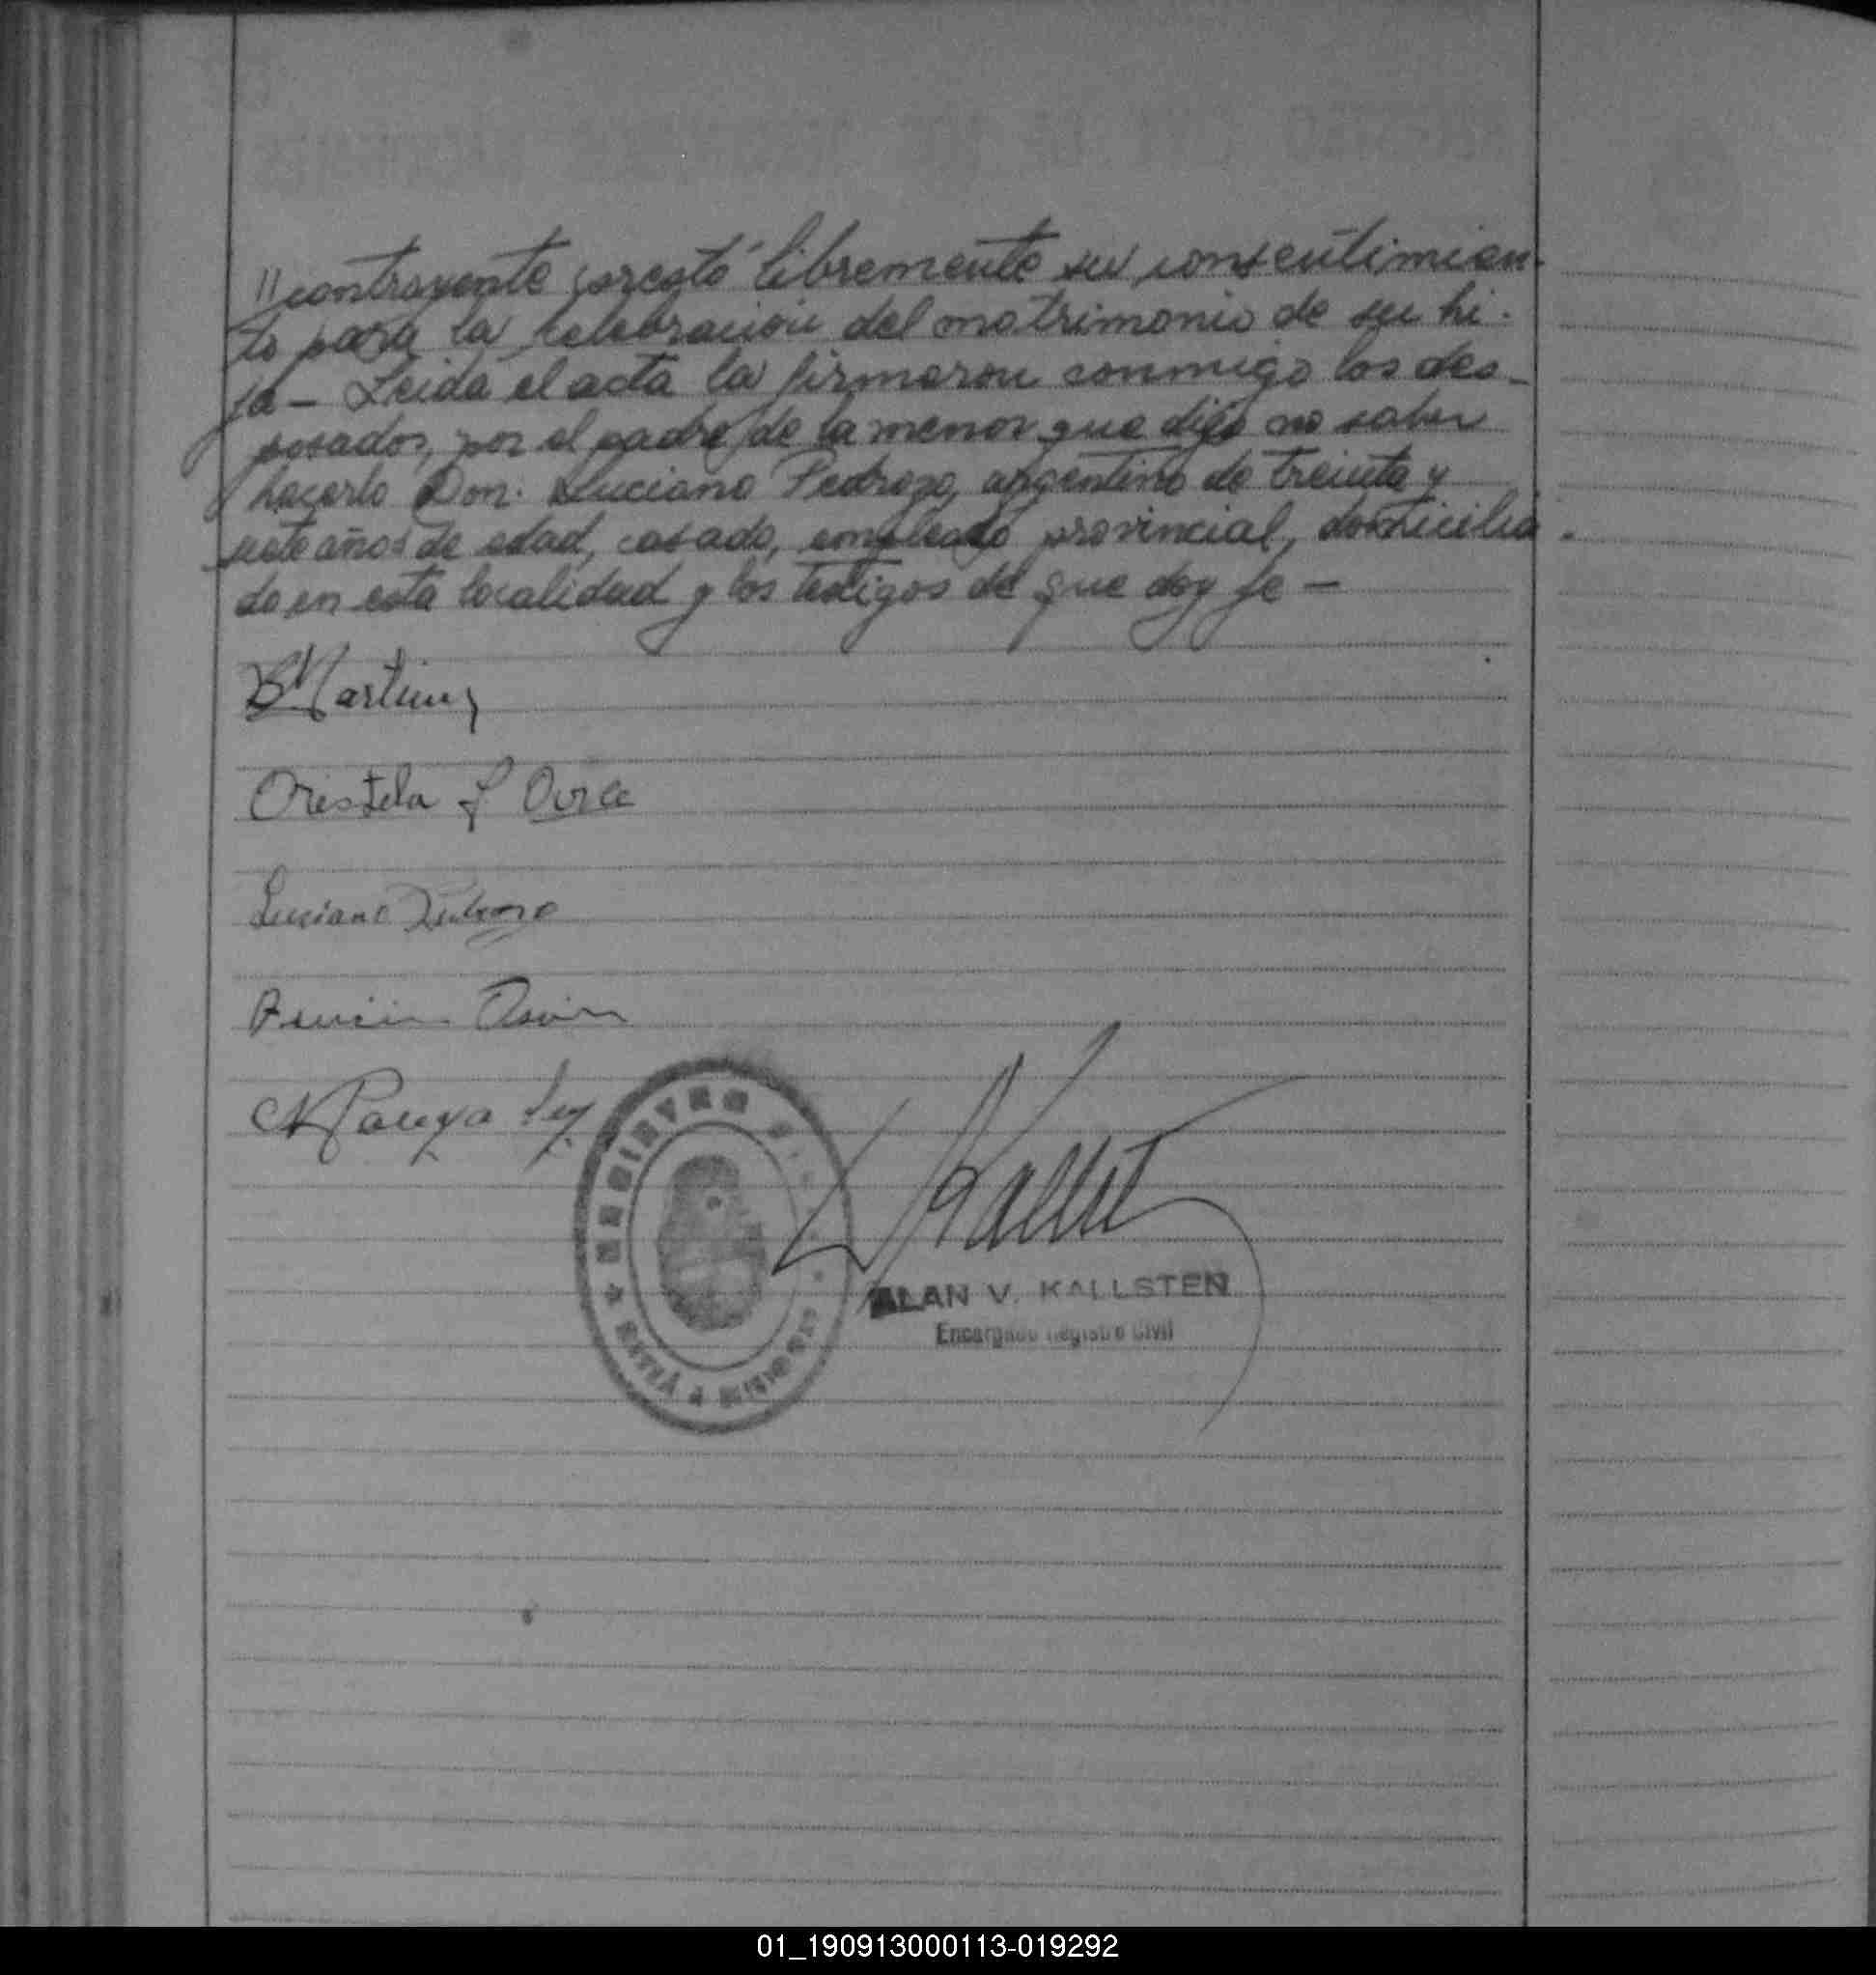 "contrayente prestó libremente su consentimien-
to para la celebración del matrimonio de su hi-
ja - Leída el acta la firmaron conmigo los des-
posados, por el padre de la menor que dijo no saber
hacerlo Don. Luciano Pedrozo, argentino de treinta y
siete años de edad, casado, empleado provincial, domicilia-
do en esta localidad y los testigos de que doy fe -
Martinez
Oristela
Luciano Pedrozo
REGISTRO
MISIONES
ALAN V. KALLSTEN
Encargado Registro Civil
01_190913000113-019292